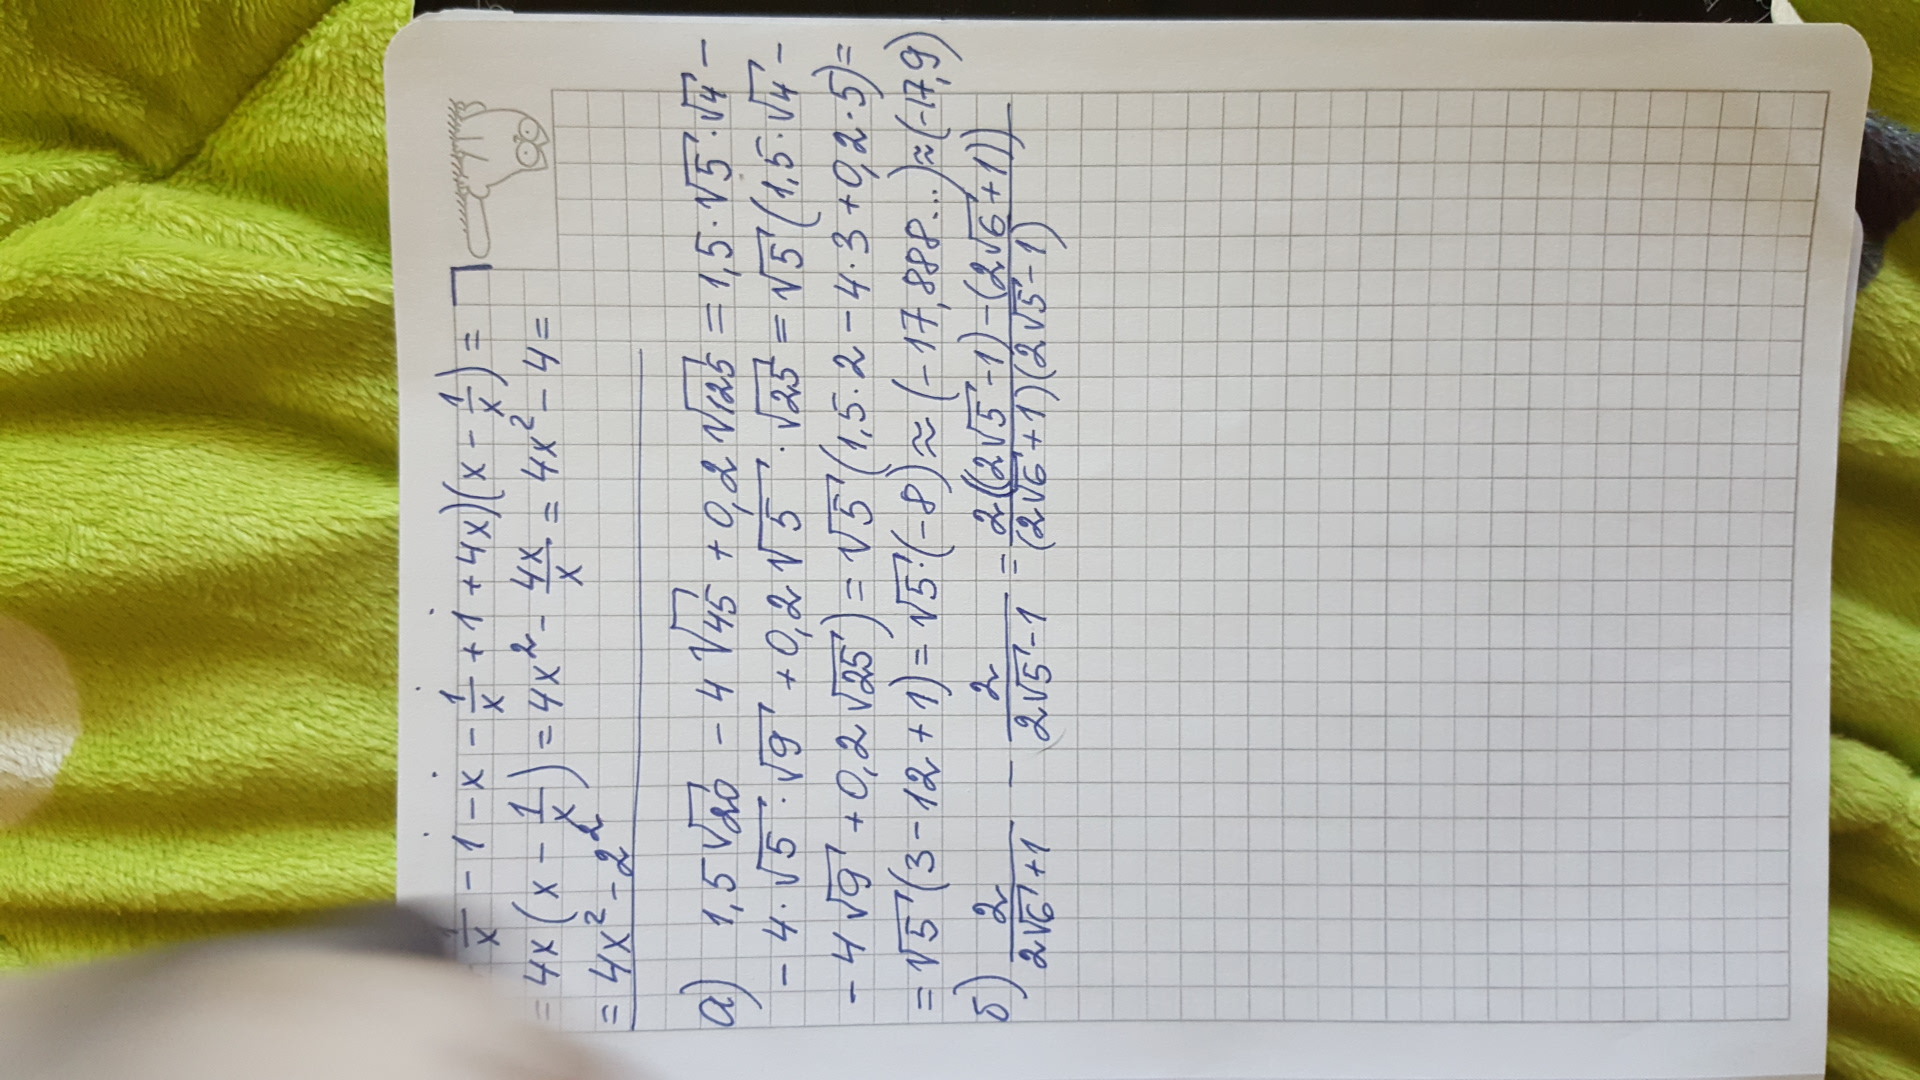 1/x - 1 - x - 1/x + 1 + 4x)(x - 1/x) =
= 4x(x - 1/x) = 4x² - 4x/x = 4x² - 4 =
= 4x² - 2²
а) 1,5√20 - 4√45 + 0,2√125 = 1,5·√5·√4 -
- 4·√5·√9 + 0,2√5·√25 = √5(1,5·√4 -
- 4√9 + 0,2√25) = √5(1,5·2 - 4·3 + 0,2·5) =
= √5(3 - 12 + 1) = √5·(-8) ≈ (-17,888...) ≈ (-17,9)
б) 2/(2√6 + 1) - 2/(2√5 - 1) = 2((2√5 - 1) - (2√6 + 1))/((2√6 + 1)(2√5 - 1))